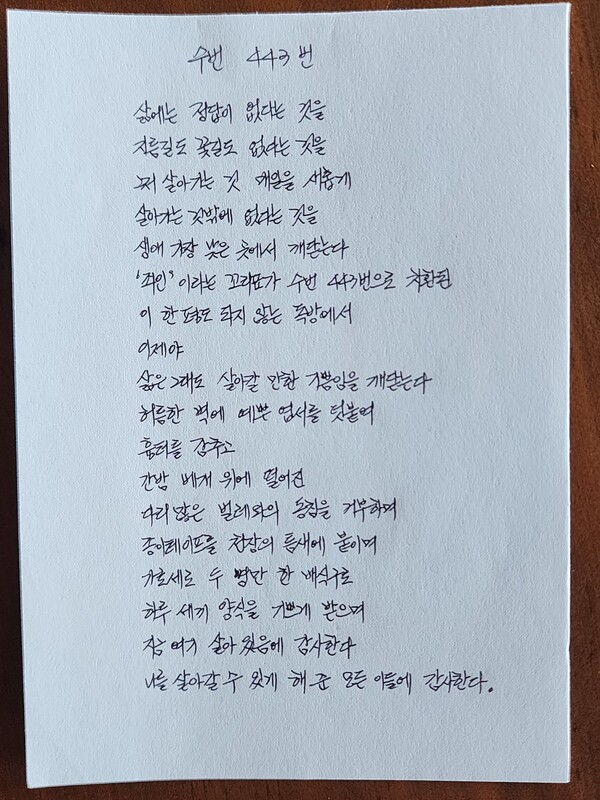 수번 443번
삶에는 정답이 없다는 것을
지름길도 꽃길도 없다는 것을
그저 살아가는 것 매일을 새롭게
살아가는 것밖에 없다는 것을
생애 가장 낮은 곳에서 깨닫는다
'죄인'이라는 꼬리표가 수번 443번으로 치환된
이 한 평도 되지 않는 독방에서
이제야
삶은 그래도 살아갈 만한 기쁨임을 깨닫는다
허름한 벽에 예쁜 엽서를 덧붙여
흉터를 감추고
간밤 베개 위에 떨어진
다리 많은 벌레와의 동침을 거부하며
종이테이프를 천장의 틈새에 붙이며
가로세로 두 뼘만 한 배식구로
하루 세끼 양식을 기쁘게 받으며
지금 여기 살아 있음에 감사한다
나를 살아갈 수 있게 해 준 모든 이들에 감사한다.